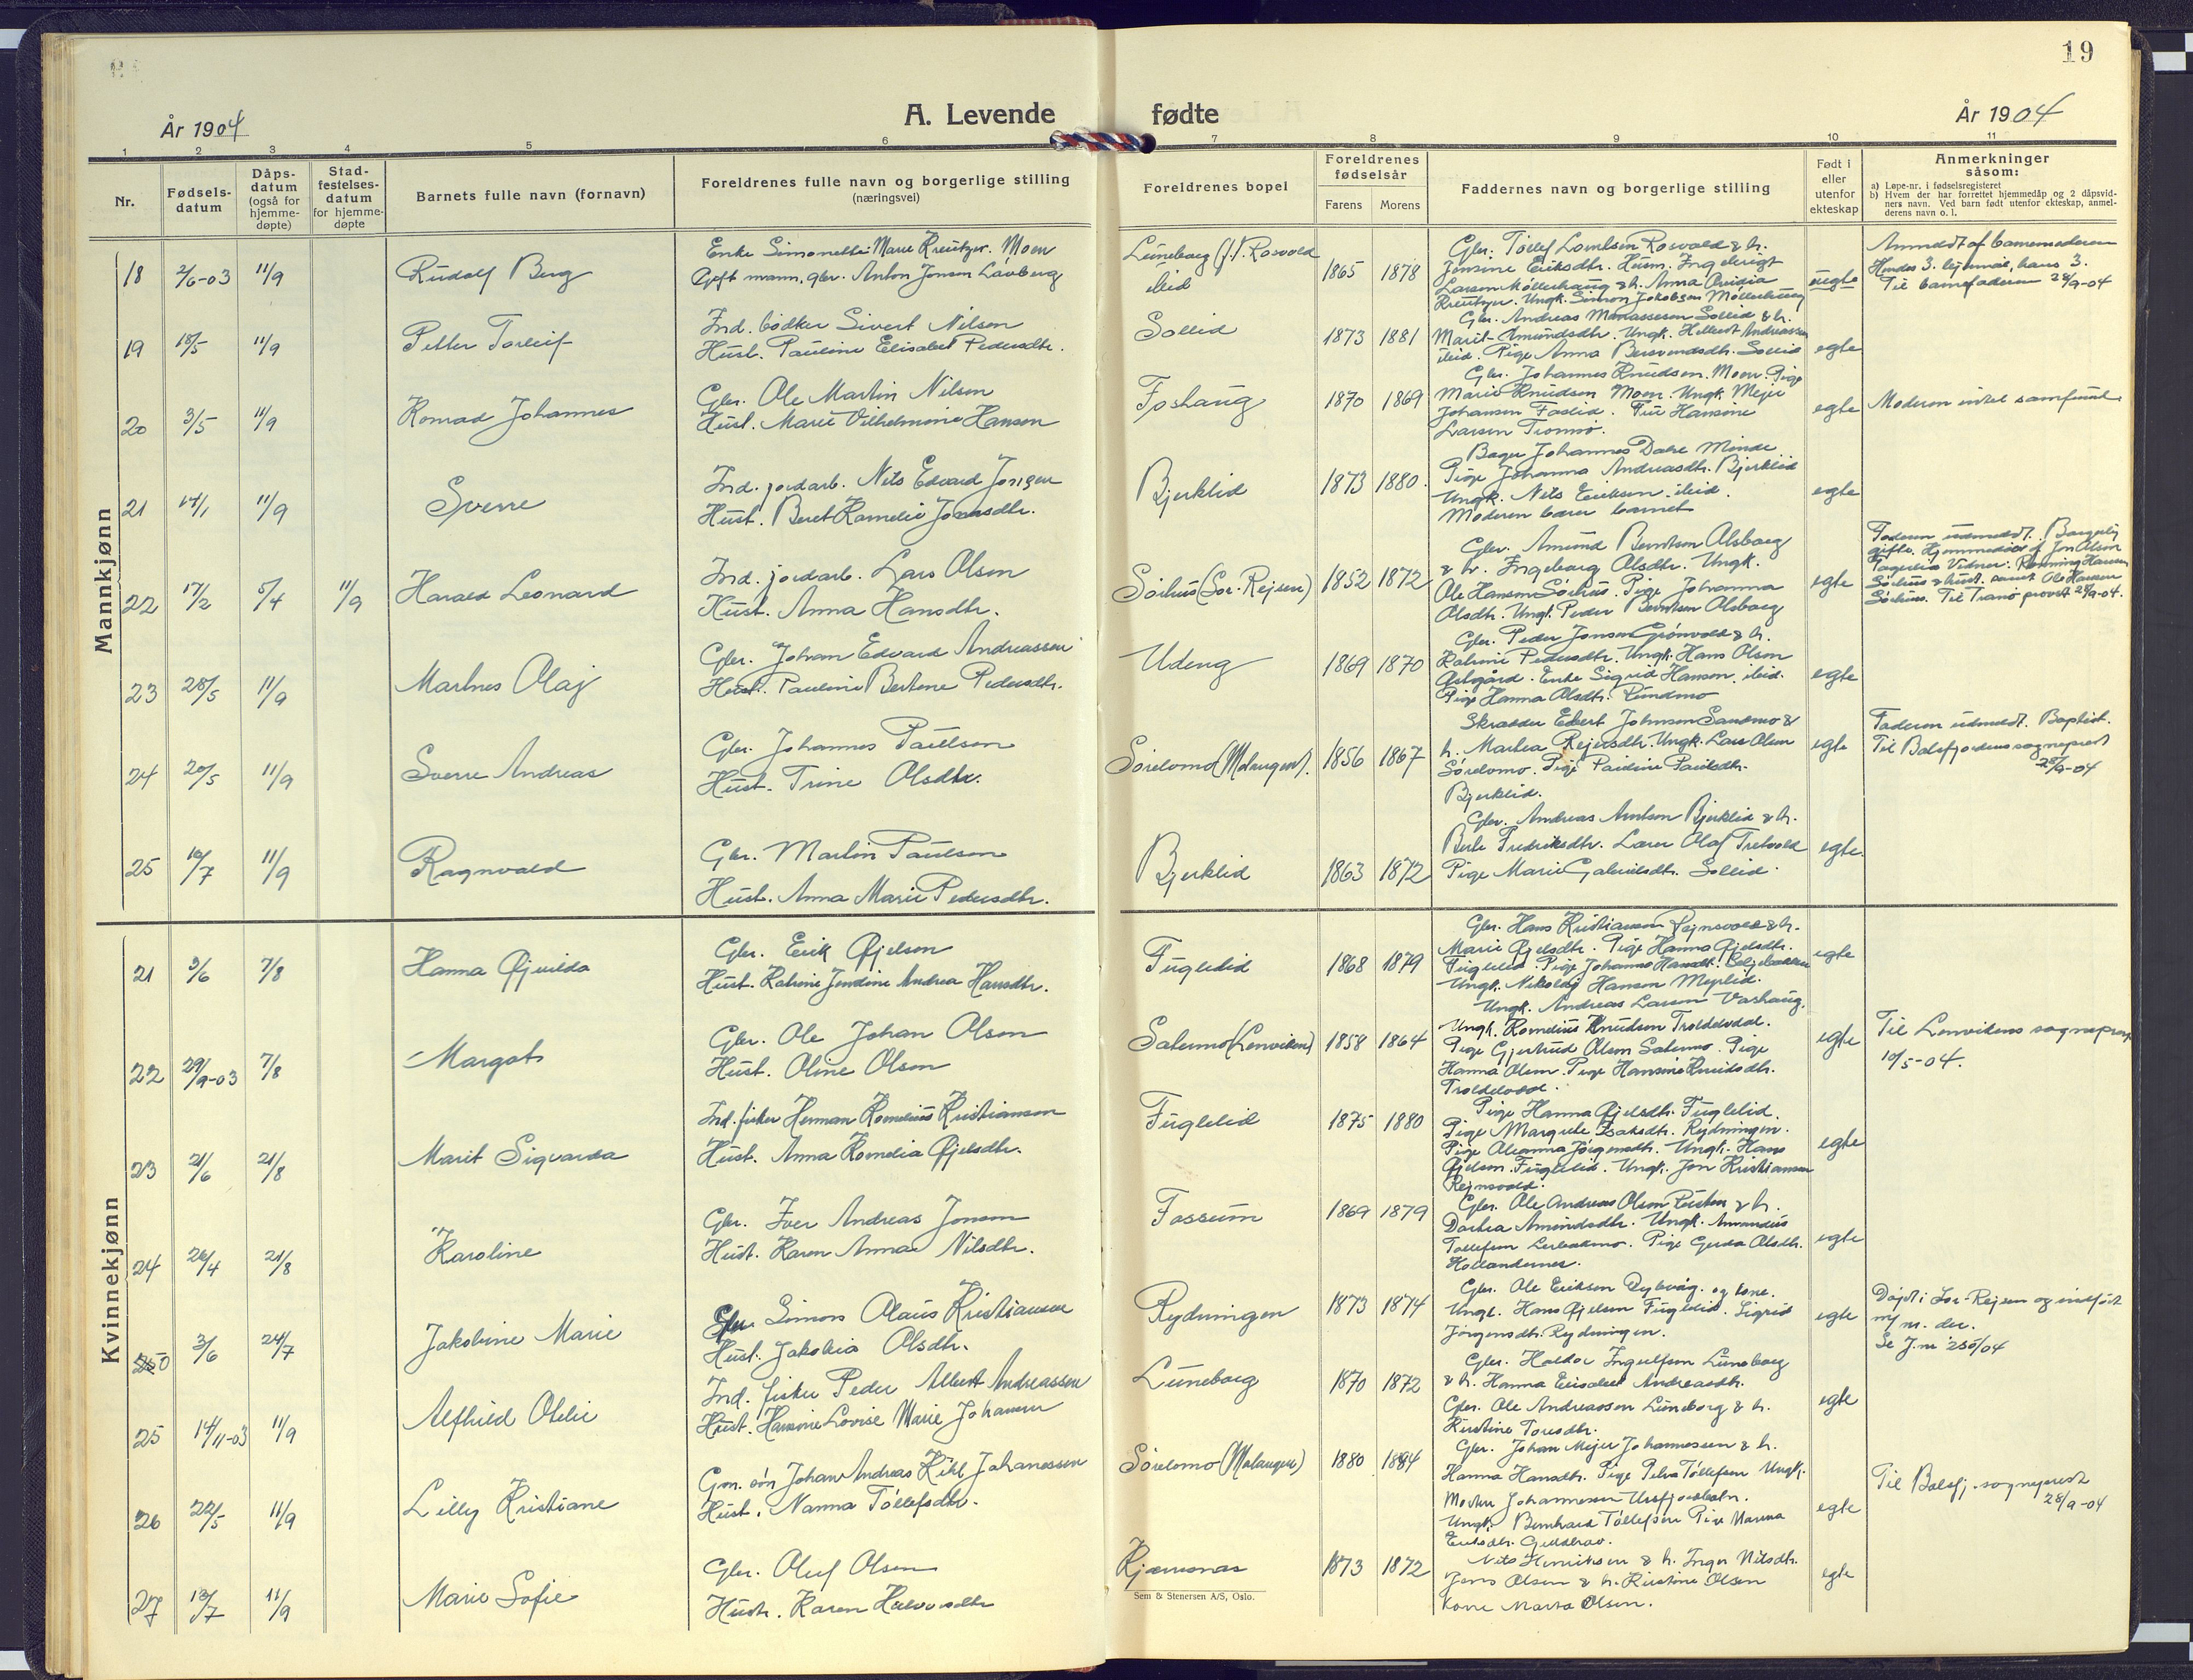 19
År 1904
A. Levende
fødte
År 1904
1 2 3 4 5 6 7 8 9 10 11
Nr.
Fødsels-
datum
Dåps-
datum
(også for
hjemme-
døpte)
Stad-
festelses-
datum
for hjemme-
døpte
Barnets fulle navn (fornavn)
Foreldrenes fulle navn og borgerlige stilling
(næringsvei)
Foreldrenes bopel
Foreldrenes
fødselsår
Farens Morens
Faddernes navn og borgerlige stilling
Født i
eller
utenfor
ekteskap
Anmerkninger
såsom:
a) Løpe-nr. i fødselsregisteret
b) Hvem der har forrettet hjemmedåp og 2 dåpsvid-
ners navn. Ved barn født utenfor ekteskap, anmel-
derens navn o. l.
Mannkjønn
18 2/6-03 11/9 Rudolf Berg
Enke Simonette Marie Kreutzer. Moen
Gift mann, gbr. Anton Jensen Løvberg
1865 1878
Gbr. Tollef Rosvold & h.
Jensine Eriksdtr.
uegte
Anmeldt af barnemoderen
Hendes 3. leiermaal, hans 3.
Til barnefaderen 28/9-04
19 18/5 11/9 Petter Torleif
Ind. bødker Sivert Nilsen
Hust. Pauline Elisabet Pedersdtr.
Sollid 1873 1881
Gbr. Andreas Manassesen Sollid & h.
Marit Amundsdtr. Ungk. Andreassen
ibid. Pige Anna Sollid
egte
20 3/5 11/9 Konrad Johannes
Gbr. Ole Martin Nilsen
Hust. Marie Vilhelmine Hansen
Foshaug 1870 1869
Gbr. Johannes Knudsen. Moen. Pige
Marie Knudsen Moen. Ungk. Mejer
Johansen Foslid. Fru Hansine
Larsen Tromsø.
egte
Moderen intet samfund
21 14/1 11/9 Sverre
Ind. jordarb. Nils Edvard Jensen
Hust. Beret Kornelie Jonasdtr.
Bjerklid 1873 1880
Bager Johannes Dahl Minde
Pige Johanna Andreasdtr. Bjerklid
Ungk. Nils Eriksen. ibid.
Moderen bærer barnet
egte
22 17/2 5/4 11/9 Harald Leonard
Ind. jordarb. Lars Olsen
Hust. Anna Hansdtr.
Sørhus (Sør-Rejsen) 1852 1872
Gbr. Amund Berntsen Alsborg
& h. Ingeborg Olsdtr. Ungk.
Ole Hansen Sørhus. Pige Johanna
Olsdtr. Ungk. Peder Berntsen Alsborg
egte
Faderen udmeldt. Borgerlig
gifte. Hjemmedøbt af Jon Olsen
Vidner: Hansen
Sørhus & hust. samt Ole Hansen
Sørhus. Til Tranø provst 28/9-04.
23 28/5 11/9 Martnes Olaj
Gbr. Johan Edvard Andreassen
Hust. Pauline Bertine Pedersdtr.
Udeng 1869 1870
Gbr. Peder Jensen Grønvold & h.
Katrine Pedersdtr. Ungk. Hans Olsen
Enke Sigrid Hansen, ibid.
Pige Hanna Olsdtr. Rundmo
egte
24 20/5 11/9 Sverre Andreas
Gbr. Johannes Paulsen
Hust. Trine Olsdtr.
Sørelvmo (Malangen). 1856 1867
Skrædder Edvert Johnsen Sandmo &
h. Martea Rejersdtr. Ungk. Lars Olsen
Sørelvmo. Pige Pauline Paulsdtr.
Bjerklid.
egte
Faderen udmeldt. Baptist.
Til Balsfjordens sogneprest
28/9-04
25 10/7 11/9 Ragnvald
Gbr. Martin Paulsen
Hust. Anna Marie Pedersdtr.
Bjerklid 1863 1872
Gbr. Andreas Arntsen Bjerklid & h.
Berte Fredriksdtr. Lærer Olaf Tretvold
Pige Marie Gabrielsdtr. Sollid.
egte.
Kvinnekjønn
21 3/6 7/8 Hanna Gjevilda
Gbr. Erik Gjelsen
Hust. Katrine Jendine Andrea Hansdtr.
Fuglelid 1868 1879
Gbr. Hans Kristiansen Rejnsvold & h.
Marie Gjelsdtr. Pige Hanna Gjelsdtr.
Fuglelid. Pige Johanna Hansdtr.
Ungk. Nikolaj Hansen Moplid.
egte
22 29/9-03 7/8 Margot
Gbr. Ole Johan Olsen
Hust. Oline Olsen
Satermo (Lenviken) 1858 1864
Ungk. Andreas Larsen Vashaug.
Ungk. Kornelius Knudsen Troldelvdal.
Pige Gjertrud Olsen Satermo. Pige
Hanna Olsen. Pige Hansine Knudsdtr.
egte
Til Lenvikens sogneprest
10/5-04.
23 21/6 21/8 Marit Sigvarda
Ind. fisker Herman Kornelius Kristiansen
Hust. Anna Kornelia Gjelsdtr.
Fuglelid 1875 1880
Pige Hanna Gjelsdtr. Fuglelid.
Pige Margrete Isaksdtr. Rydningen.
Pige Oleanna Jørgensdtr. Ungk. Hans
Gjelsen. Fuglelid. Ungk. Jon Kristiansen
Rejnsvold.
egte
24 26/4 21/8 Karoline
Gbr. Iver Andreas Jensen
Hust. Karen Anna Nilsdtr.
Fossum 1869 1879
Gbr. Ole Andreas Olsen & h.
Dortea Amundsdtr. Ungk. Amandus
Tollefsen. Pige Gerda Olsdtr.
Hollændernes.
egte
250 3/6 24/7 Jakobine Marie
Gbr. Simon Olaus Kristiansen
Hust. Jakobia Olsdtr.
Rydningen 1873 1874
Gbr. Ole Eriksen og kone.
Ungk. Hans Gjelsen Fuglelid. Sigrid
Jørgensdtr. Rydningen.
egte
Døpt i Sør-Rejsen og indført
m/ nr. der.
Se J.nr 250/04
25 14/11-03 11/9 Alfhild Otelie
Ind. fisker Peder Albert Andreassen
Hust. Hansine Lovise Marie Johansen
Luneborg 1870 1872
Gbr. Haldor Ingulfsen Luneborg
& h. Hanna Elisabet Andreasdtr.
Gbr. Ole Andreassen Luneborg & h.
Kirstine Toresdtr.
egte
26 22/5 11/9 Lilly Kristiane
Gm. søn Johan Andreas Kihl Johanessen
Hust. Nanna Tollefsdtr.
Sørelvmo (Malangen) 1880 1884
Gbr. Johan Mejer Johannessen & h.
Hanna Hansdtr. Pige Petra Tollefsen Ungk.
Morten Johannesen
Ungk. Bernhard Tollefsen Pige Marina
egte
Til Balsfj. sogneprest
28/9-04
27 13/7 11/9 Marie Sofie
Gbr. Oluf Olsen
Hustr. Karen Halvorsdtr
Kjærnesnes 1873 1872
Nils Henriksen & h. Inger Nilsdtr.
Jens Olsen & h. Kirstine Olsen
Kone Marta Olsen.
egte
Sem & Stenersen A/S, Oslo.